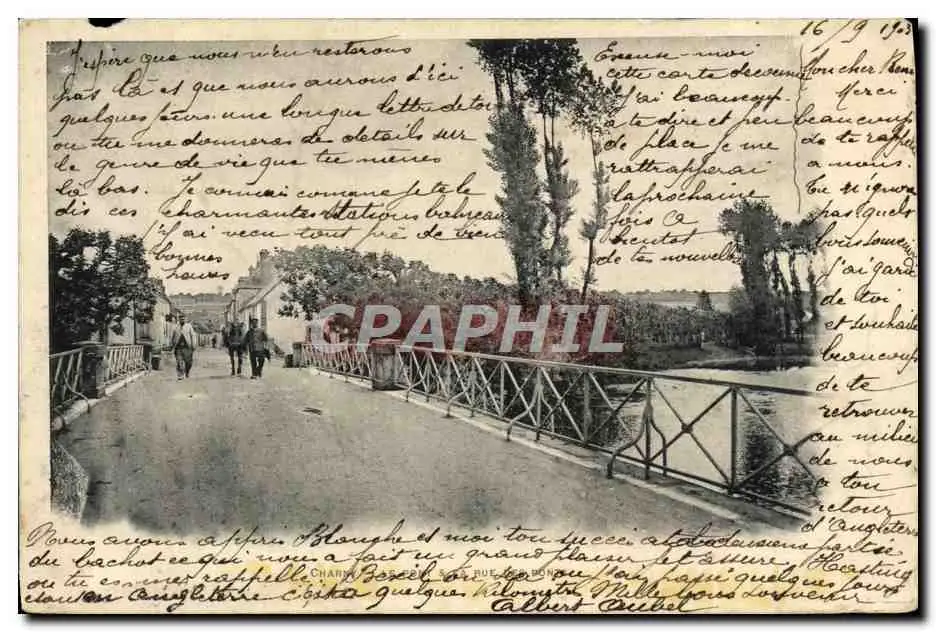 16/9 1903
Mon cher René
Merci
beaucoup
de te rappeler
a nous.
Tu n'ignores
pas quels
bons souvenirs
j'ai gardé
de toi
et souhaite
beaucoup
de te
retrouver
au milieu
de nous
a ton
retour
d'Angleterre
Nous avons appris Blanche et moi ton succès
du bachot ce qui nous a fait un grand plaisir je t'assure. Hasting
ou tu es me rappelle Bexhill ou j'ai passé quelques jours
en Angleterre C'est a quelques kilomètres Mille bons souvenirs
Albert Aubel
J'espère que nous n'en resterons
pas là et que nous aurons d'ici
quelques jours une longue lettre de toi
ou tu me donneras de détails sur
le genre de vie que tu mènes
là bas. Je connais comme je te le
dis ces charmantes stations balnéaires
j'ai vécu tout près de Bexhill
bonnes
heures
Excuse-moi
cette carte décousue
J'ai beaucoup
a te dire et peu
de place je me
rattraperai
la prochaine
fois A
bientôt
de tes nouvelles
CHARNY LE PONT & LA RUE DES PONTS
CPAPHIL